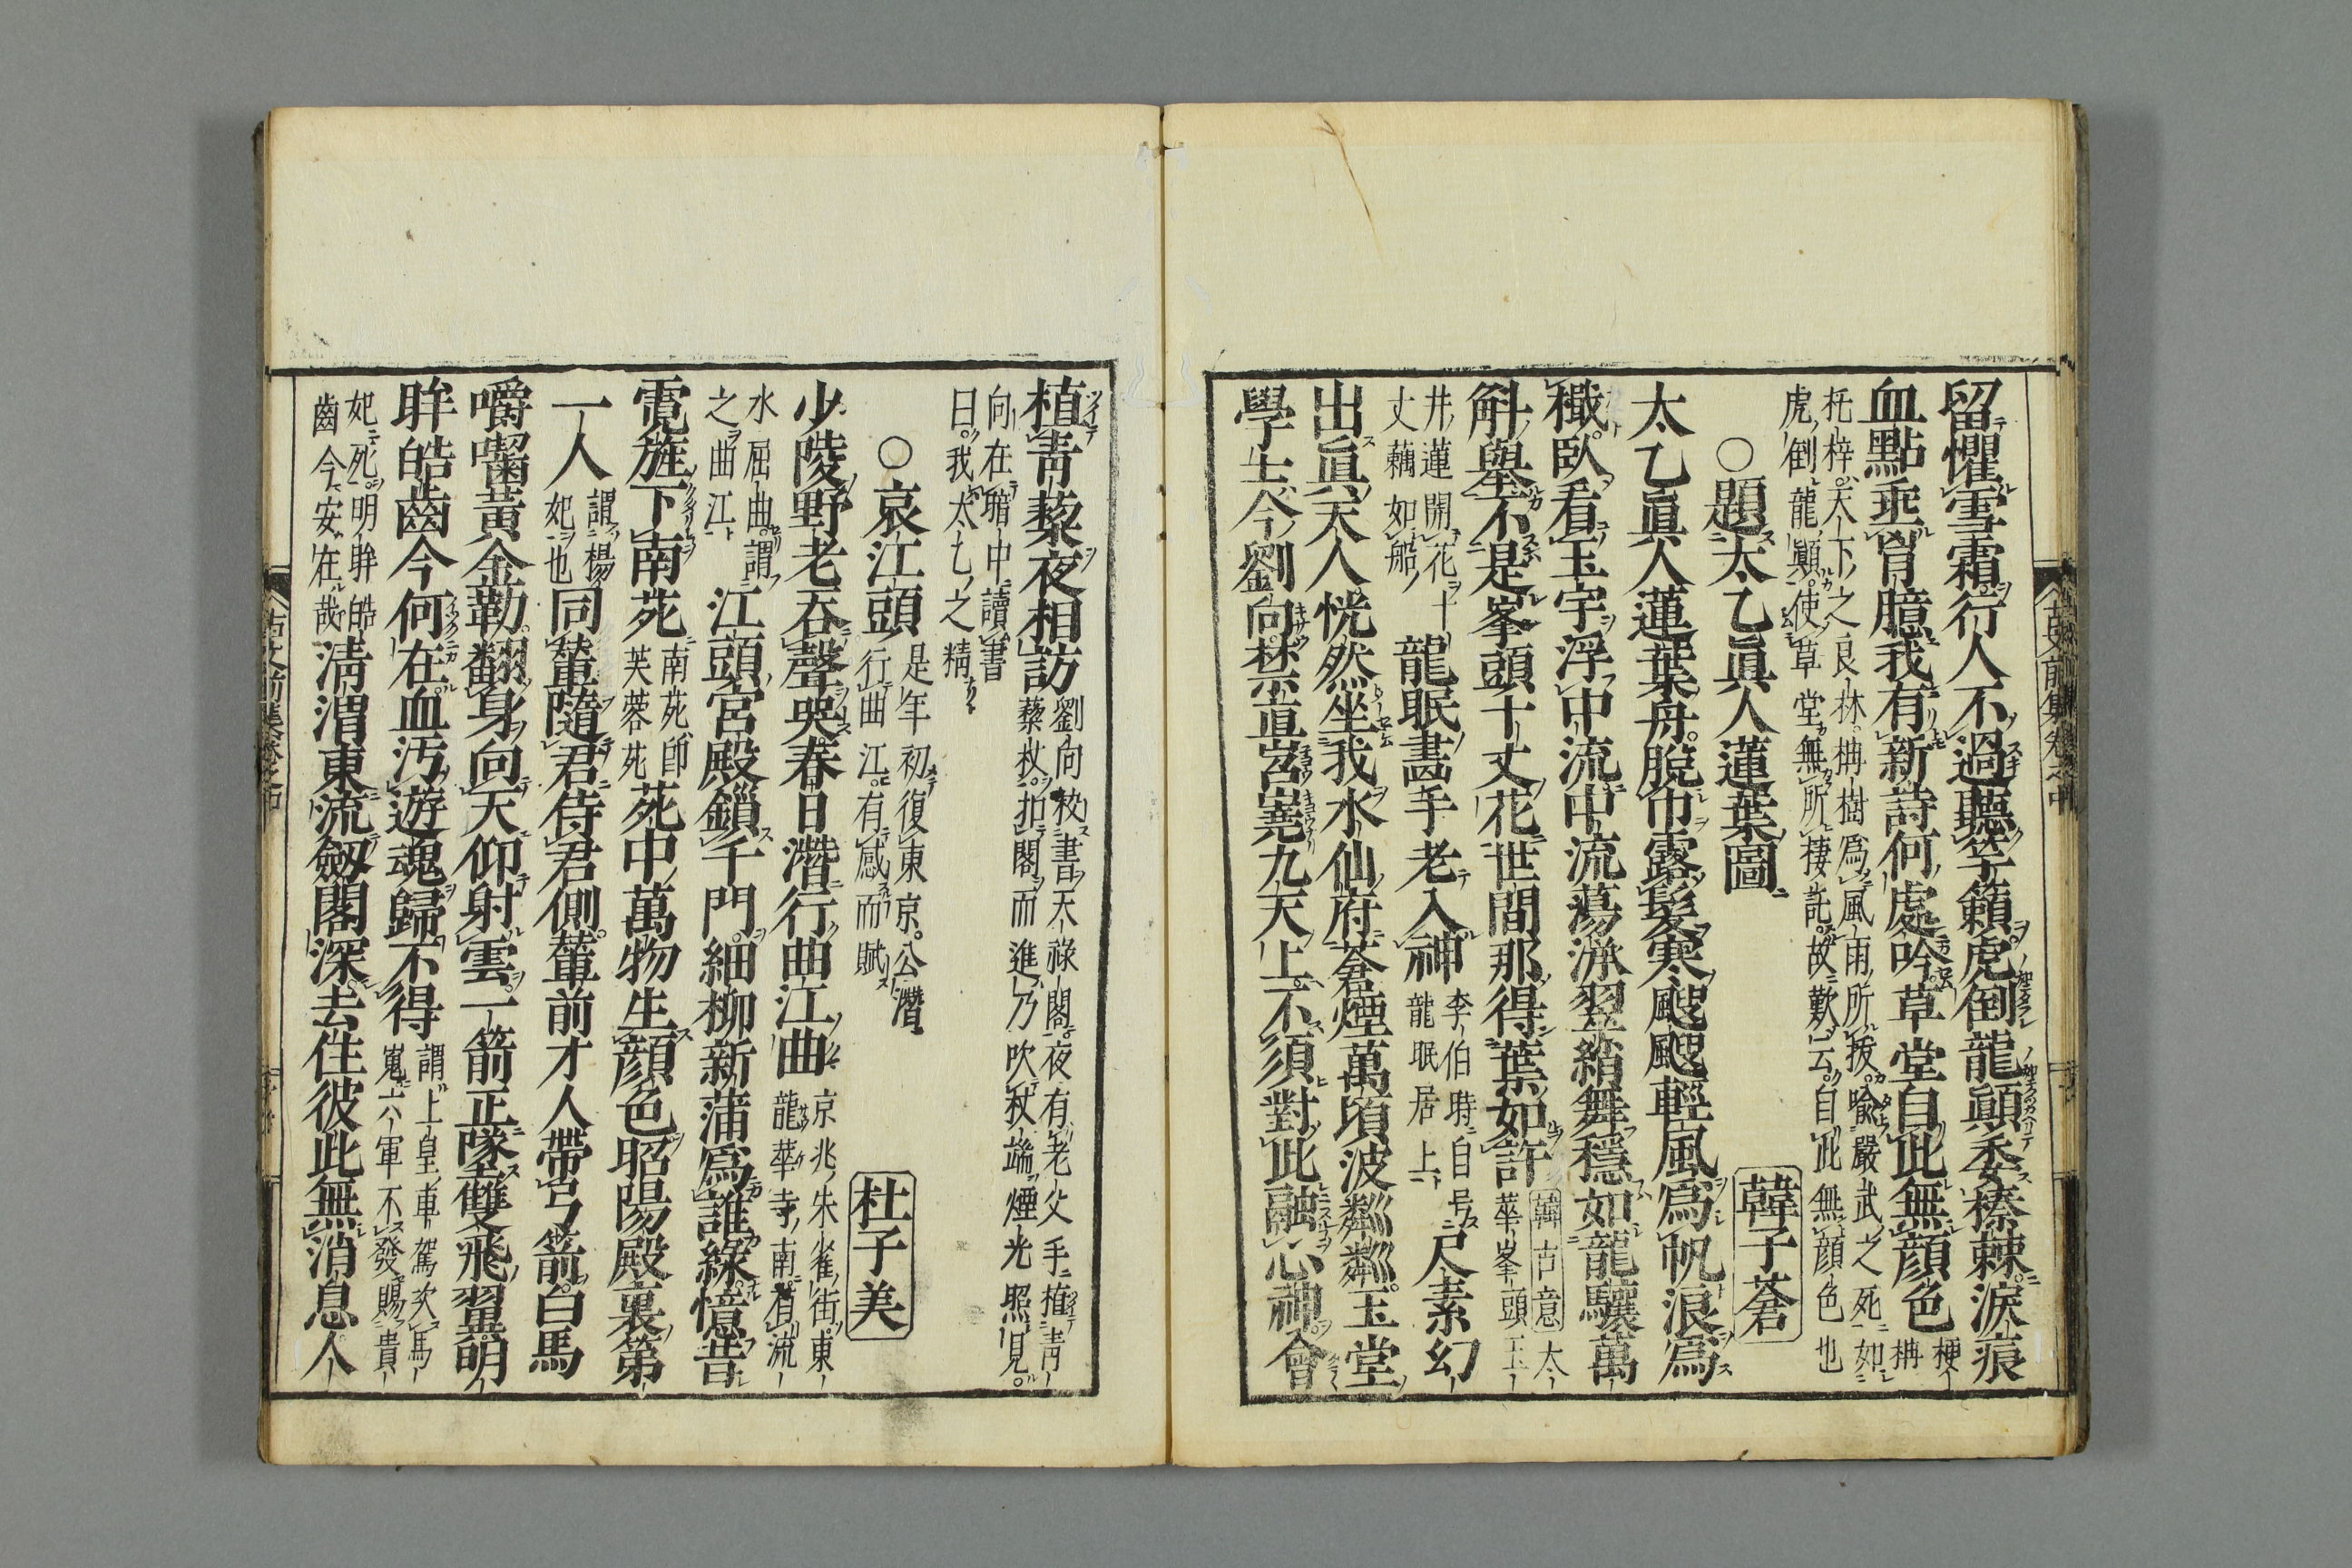 留懼雪霜行人不過聽竽籟虎倒龍顚委榛棘淚痕
血點垂胷臆我有新詩何處吟草堂自此無顔色楩
枏
杔梓天下之良林枏樹爲風雨所拔喩嚴武之死如
虎倒龍顚使草堂無所棲託故歎云自此無顔色也
○題太乙眞人蓮葉圖
韓子蒼
太乙眞人蓮葉舟脫巾露髮寒颼颼輕風爲帆浪爲
檝臥看玉宇浮中流中流蕩漾翠綃舞穩如龍驤萬
斛擧不是峯頭十丈花世間那得葉如許
韓古意太
華峯頭玉
井蓮開花十
丈藕如船
龍眠畫手老入神
李伯時自号
龍眠居上
尺素幻
出眞天人恍然坐我水仙府蒼煙萬頃波粼粼玉堂
學士今劉向禁直岧嶤九天上不須對此融心神會
植靑藜夜相訪
劉向校書天祿閣夜有老父手植靑
藜杖扣閣而進乃吹杖端煙光照見
向在暗中讀書
曰我太乙之精
○哀江頭
是年初復東京公潛
行曲江有感而賦
杜子美
少陵野老吞聲哭春日潛行曲江曲
京兆朱雀街東
龍華寺南有流
水屈曲謂
之曲江
江頭宮殿鎖千門細柳新蒲爲誰綠憶昔
霓旌下南苑
南苑卽
芙蓉苑
苑中萬物生顔色昭陽殿裏第
一人
謂楊
妃也
同輦隨君侍君側輦前才人帶弓箭白馬
嚼齧黃金勒翻身向天仰射雲一箭正墜雙飛翼明
眸皓齒今何在血汚遊魂歸不得
謂上皇車駕次馬
嵬六軍不發賜貴
妃死明眸皓
齒今安在哉
淸渭東流劔閣深去住彼此無消息人
古文前集卷之中